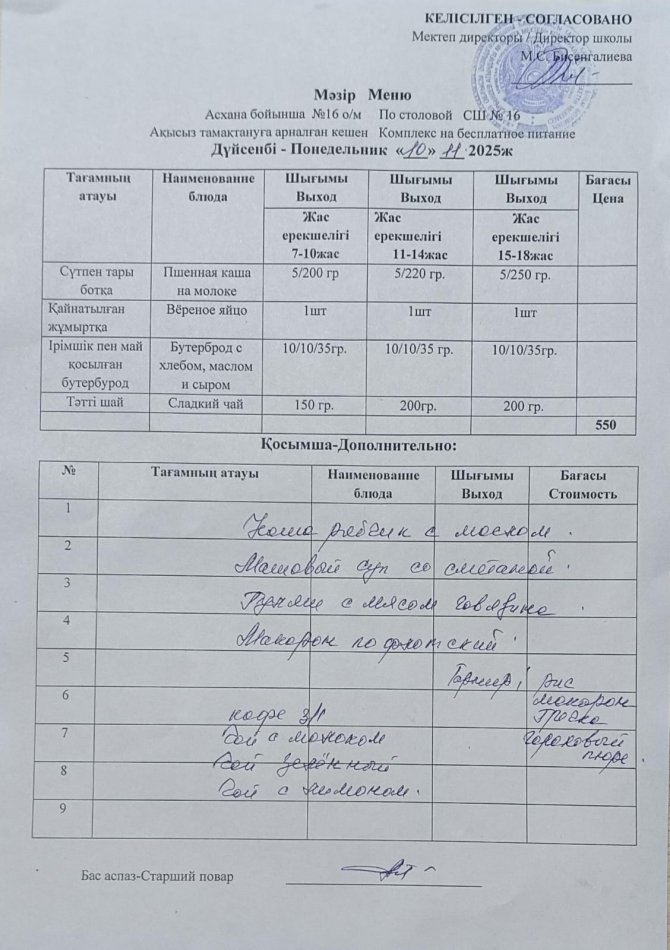 КЕЛІСІЛГЕН - СОГЛАСОВАНО
Мектеп директоры / Директор школы
М.С. Бисенгалиева
Мәзір Меню
Асхана бойынша №16 о/м По столовой СШ № 16
Ақысыз тамақтануға арналған кешен Комплекс на бесплатное питание
Дүйсенбі - Понедельник «10» 11 2025ж
Тағамның атауы Наименование блюда Шығымы Выход Шығымы Выход Шығымы Выход Бағасы Цена
Жас ерекшелігі 7-10жас Жас ерекшелігі 11-14жас Жас ерекшелігі 15-18жас
Сүтпен тары ботқа Пшенная каша на молоке 5/200 гр 5/220 гр. 5/250 гр.
Қайнатылған жұмыртқа Вёреное яйцо 1шт 1шт 1шт
Ірімшік пен май қосылған бутербурод Бутерброд с хлебом, маслом и сыром 10/10/35гр. 10/10/35 гр. 10/10/35гр.
Тәтті шай Сладкий чай 150 гр. 200гр. 200 гр.
550
Қосымша-Дополнительно:
№ Тағамның атауы Наименование блюда Шығымы Выход Бағасы Стоимость
1
Каша с маслом.
2
Машовый суп со сметаной.
3
с мясом говядина
4
Макарон по флотский
5
Гарнир: рис
6
макарон
кофе 3/1 Греско
7
Чай с молоком гороховый
пюре.
8
Чай зелённый
Чай с лимоном.
9
Бас аспаз-Старший повар